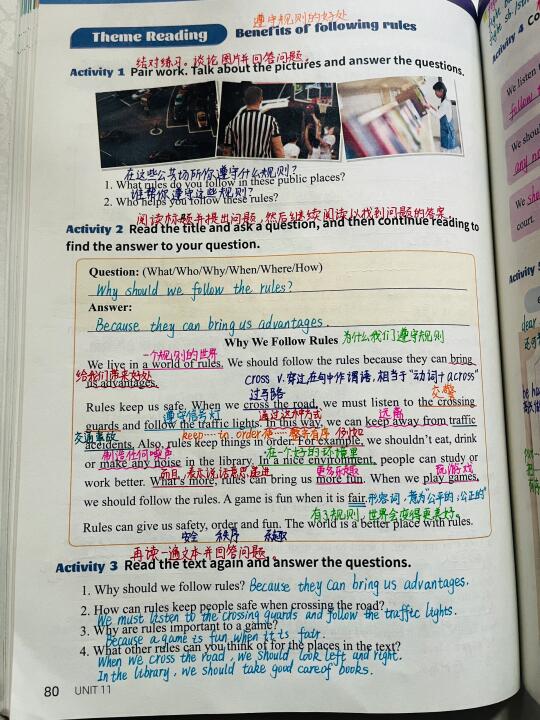 遵守规则的好处
Theme Reading Benefits of following rules
结对练习。谈论图片并回答问题。
Activity 1 Pair work. Talk about the pictures and answer the questions.
在这些公共场所你遵守什么规则?
1. What rules do you follow in these public places?
谁帮你遵守这些规则?
2. Who helps you follow these rules?
阅读标题并提出问题,然后继续阅读以找到问题的答案。
Activity 2 Read the title and ask a question, and then continue reading to
find the answer to your question.
Question: (What/Who/Why/When/Where/How)
Why should we follow the rules?
Answer:
Because they can bring us advantages.
Why We Follow Rules 为什么我们遵守规则
一个规则的世界
We live in a world of rules. We should follow the rules because they can bring
给我们带来好处
us advantages. cross v. 穿过,在句中作谓语,相当于“动词+across”
过马路 交警
Rules keep us safe. When we cross the road, we must listen to the crossing
遵守信号灯 通过这种方式 远离
guards and follow the traffic lights. In this way, we can keep away from traffic
交通事故 keep… in order 使…整齐有序 例如
accidents. Also, rules keep things in order. For example, we shouldn't eat, drink
制造任何噪声 在一个好的环境里
or make any noise in the library. In a nice environment, people can study or
而且,表示说话意思递进 更多乐趣 玩游戏
work better. What's more, rules can bring us more fun. When we play games,
we should follow the rules. A game is fun when it is fair. 形容词,意为“公平的;公正的”
有了规则,世界会变得更美好。
Rules can give us safety, order and fun. The world is a better place with rules.
安全 秩序 乐趣
再读一遍文本并回答问题。
Activity 3 Read the text again and answer the questions.
1. Why should we follow rules? Because they can bring us advantages.
2. How can rules keep people safe when crossing the road?
We must listen to the crossing guards and follow the traffic lights.
3. Why are rules important to a game?
Because a game is fun when it is fair.
4. What other rules can you think of for the places in the text?
When we cross the road, we should look left and right.
In the library, we should take good care of books.
80 UNIT 11
Activity 4
We listen
We should
any no
We sho
court.
Activity
dear